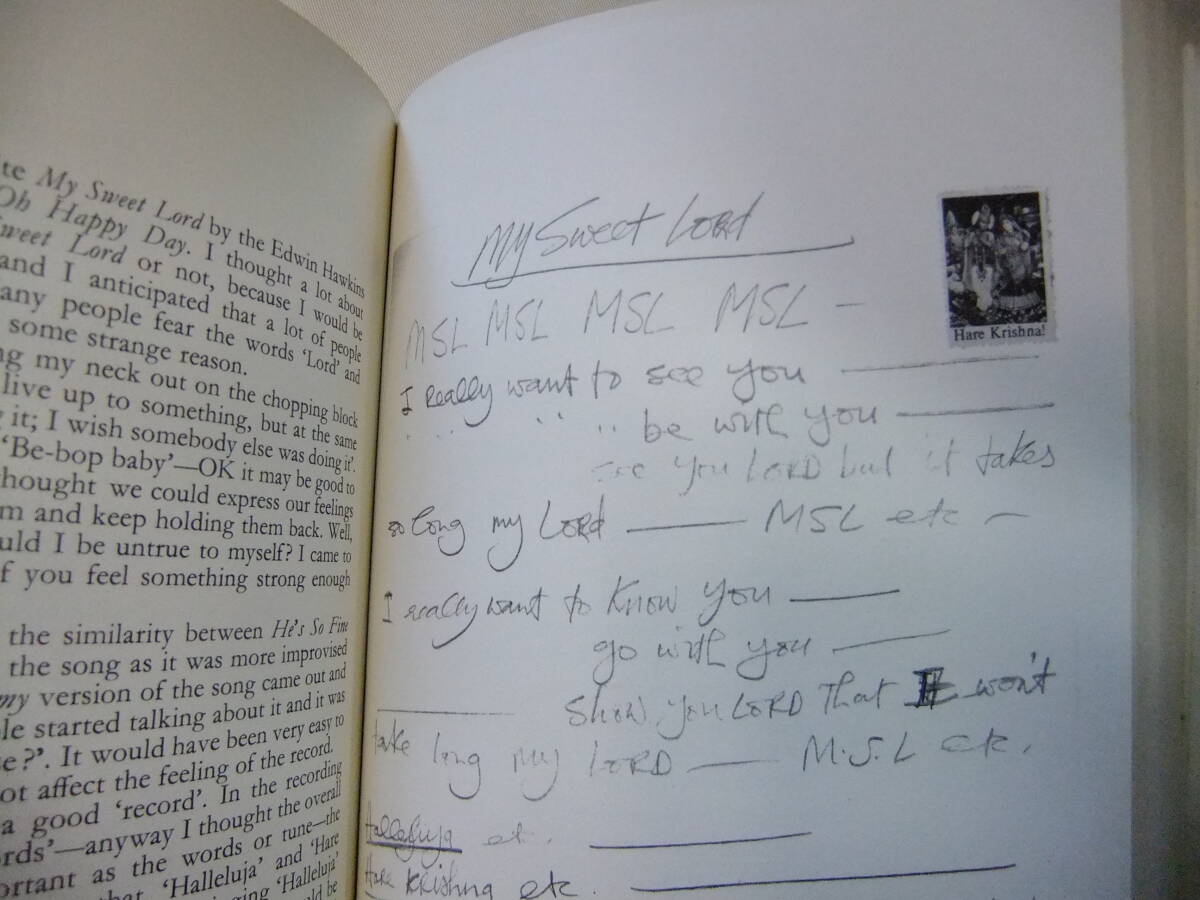 te My Sweet Lord by the Edwin Hawkins
Oh Happy Day. I thought a lot about
weet Lord or not, because I would be
and I anticipated that a lot of people
any people fear the words ‘Lord’ and
some strange reason.
ng my neck out on the chopping block
live up to something, but at the same
g it; I wish somebody else was doing it’.
‘Be-bop baby’—OK it may be good to
hought we could express our feelings
m and keep holding them back. Well,
uld I be untrue to myself? I came to
f you feel something strong enough
the similarity between He's So Fine
the song as it was more improvised
my version of the song came out and
le started talking about it and it was
e?’. It would have been very easy to
ot affect the feeling of the record.
a good ‘record’. In the recording
rds’—anyway I thought the overall
ortant as the words or tune—the
that ‘Halleluja’ and ‘Hare
nging ‘Halleluja’
ld be
My Sweet Lord
Hare Krishna!
MSL MSL MSL MSL —
I really want to see you ———
" " " be with you ———
see you LORD but it takes
so long my LORD ——— MSL etc —
I really want to know you ———
go with you ———
——— show you LORD that It won't
take long my LORD ——— M.S.L etc.
Halleluja et. ———
Hare Krishna etc. ———